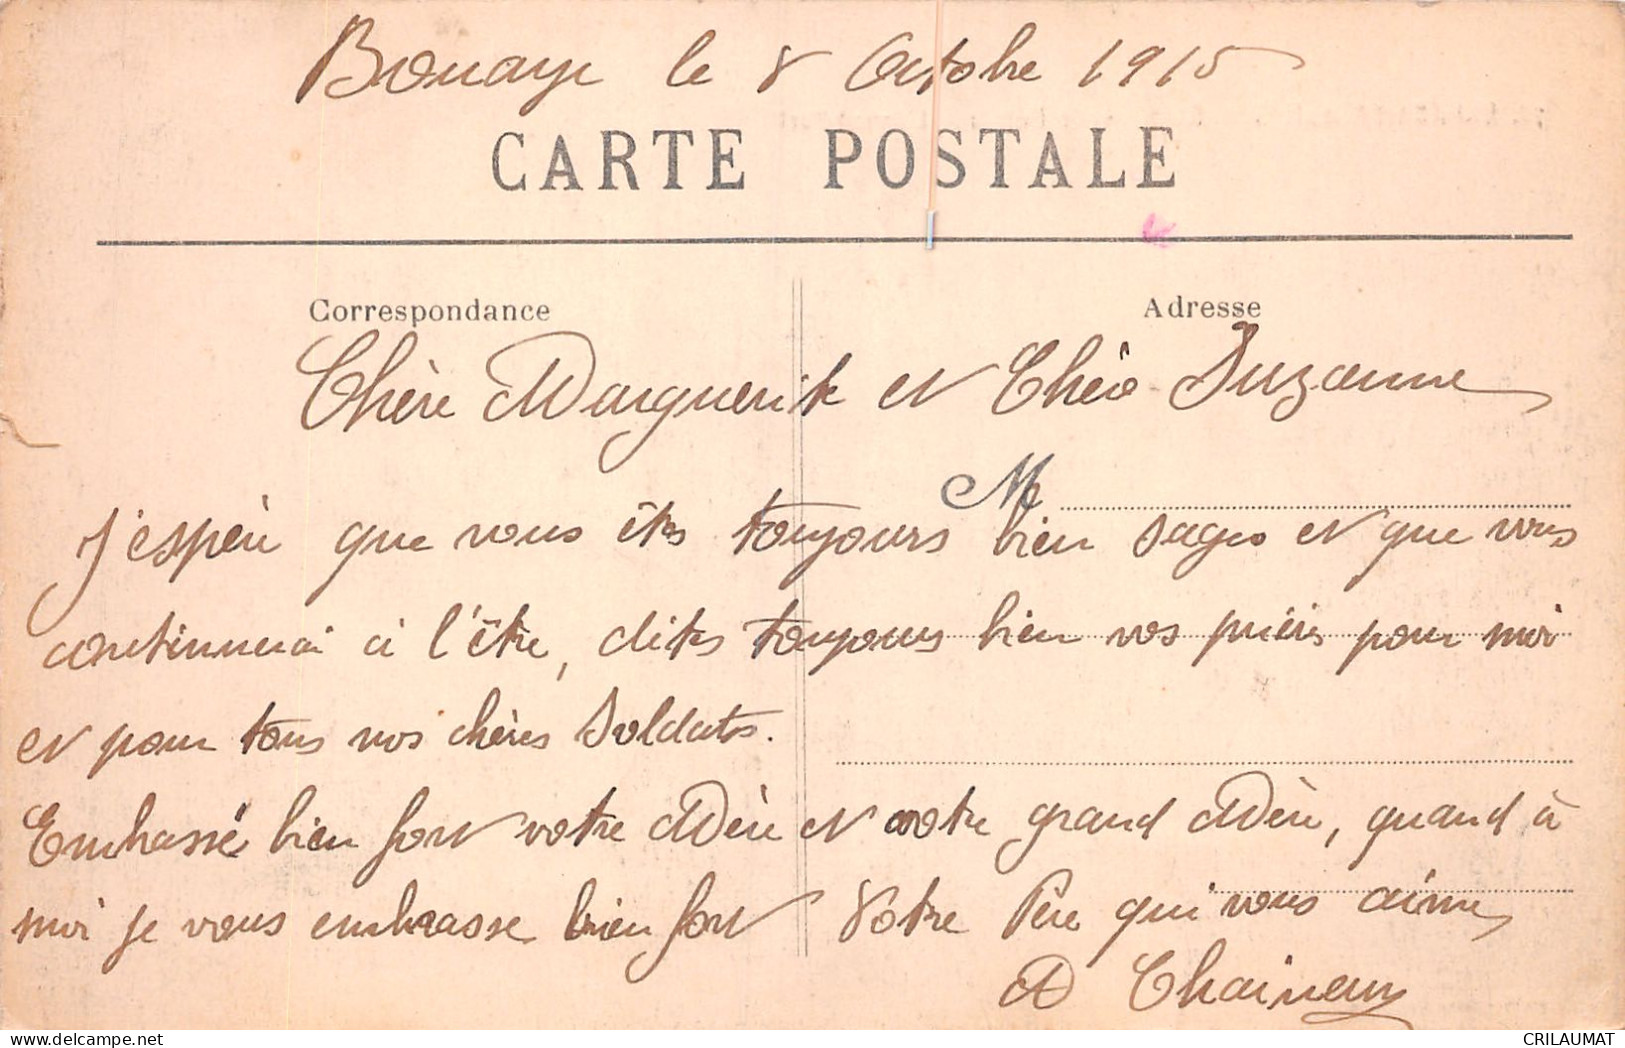 Bouaye le 8 Octobre 1915
CARTE POSTALE
Correspondance
Adresse
Chère Marguerite et Chère Suzanne
M
J'espère que vous êtes toujours bien sages et que vous
continuerai à l'être, dites toujours bien vos prières pour moi
et pour tous nos chères Soldats.
Embassé bien fort votre Mère et votre grand Mère, quand à
moi je vous embrasse bien fort Votre Père qui vous aime
A Chaineux
CRILAUMAT